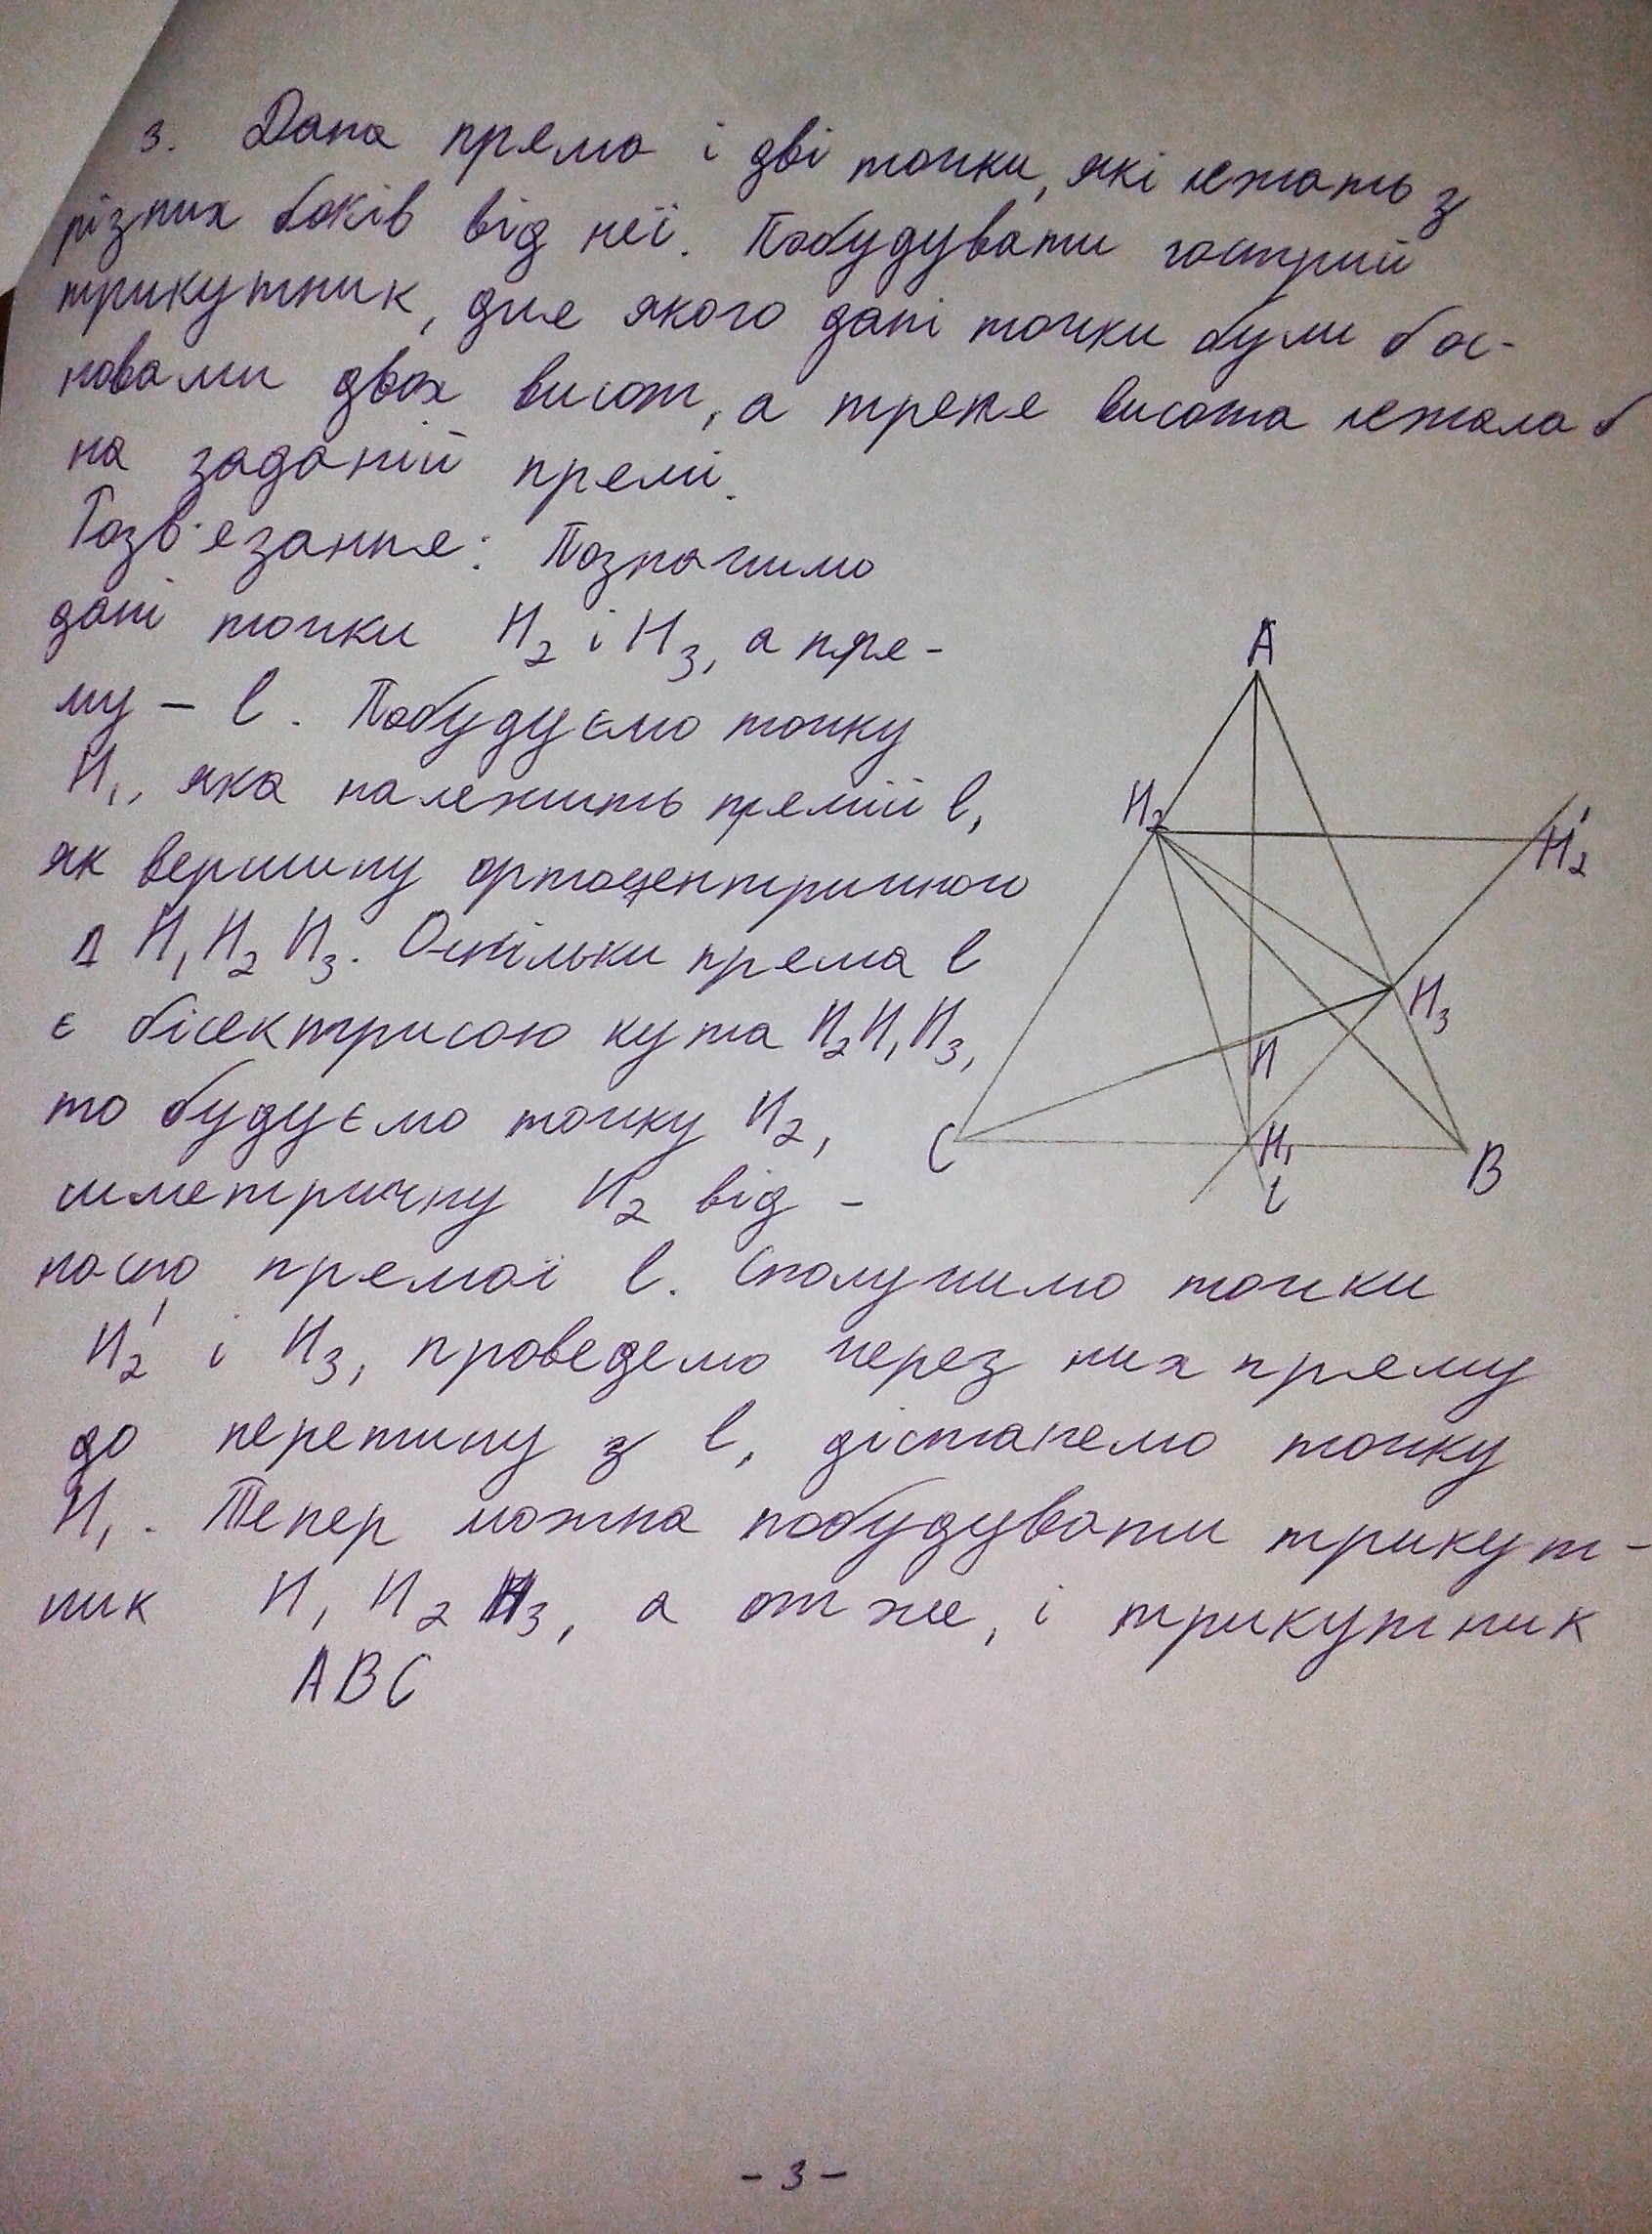 3. Дана пряма і дві точки, які лежать з
різних боків від неї. Побудувати гострий
трикутник, для якого дані точки були б ос-
новами двох висот, а третя висота лежала б
на заданій прямі.
Розв'язання: Позначимо
дані точки H₂ і H₃, а пря-
му – l. Побудуємо точку
H₁, яка належить прямій l,
як вершину ортоцентричного
Δ H₁H₂H₃. Оскільки пряма l
є бісектрисою кута H₂H₁H₃,
то будуємо точку H₂,
симетричну H₂ від-
носно прямої l. Сполучимо точки
H₂' і H₃, проведемо через них пряму
до перетину з l, дістанемо точку
H₁. Тепер можна побудувати трикут-
ник H₁H₂H₃, а отже, і трикутник
ABC
A
H₂
H₂'
H₃
H
C
H₁
B
l
- 3 -